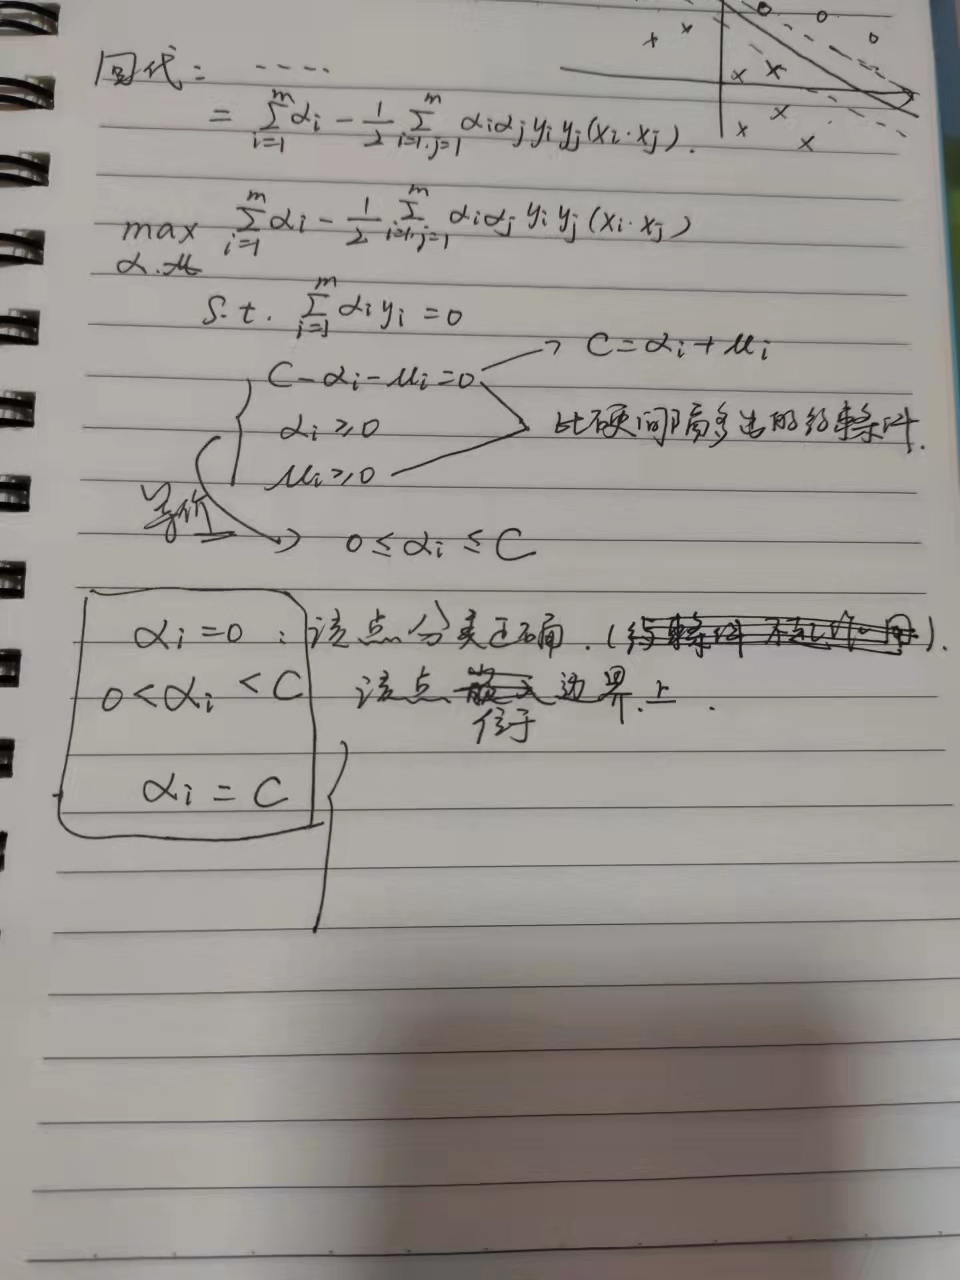 回代: ....
= Σ_{i=1}^{m} αi - 1/2 Σ_{i=1.j=1}^{m} αiαjyiyj(xi·xj).
max_{α.μ} Σ_{i=1}^{m} αi - 1/2 Σ_{i=1.j=1}^{m} αiαjyiyj(xi·xj)
S.t. Σ_{i=1}^{m} αiyi = 0
C-αi-μi=0 → C=αi+μi
αi≥0 比硬间隔多出的约束条件.
μi≥0
等价 → 0≤αi≤C
αi=0: 该点分类正确.( ).
0<αi<C 该点位于边界上.
αi=C